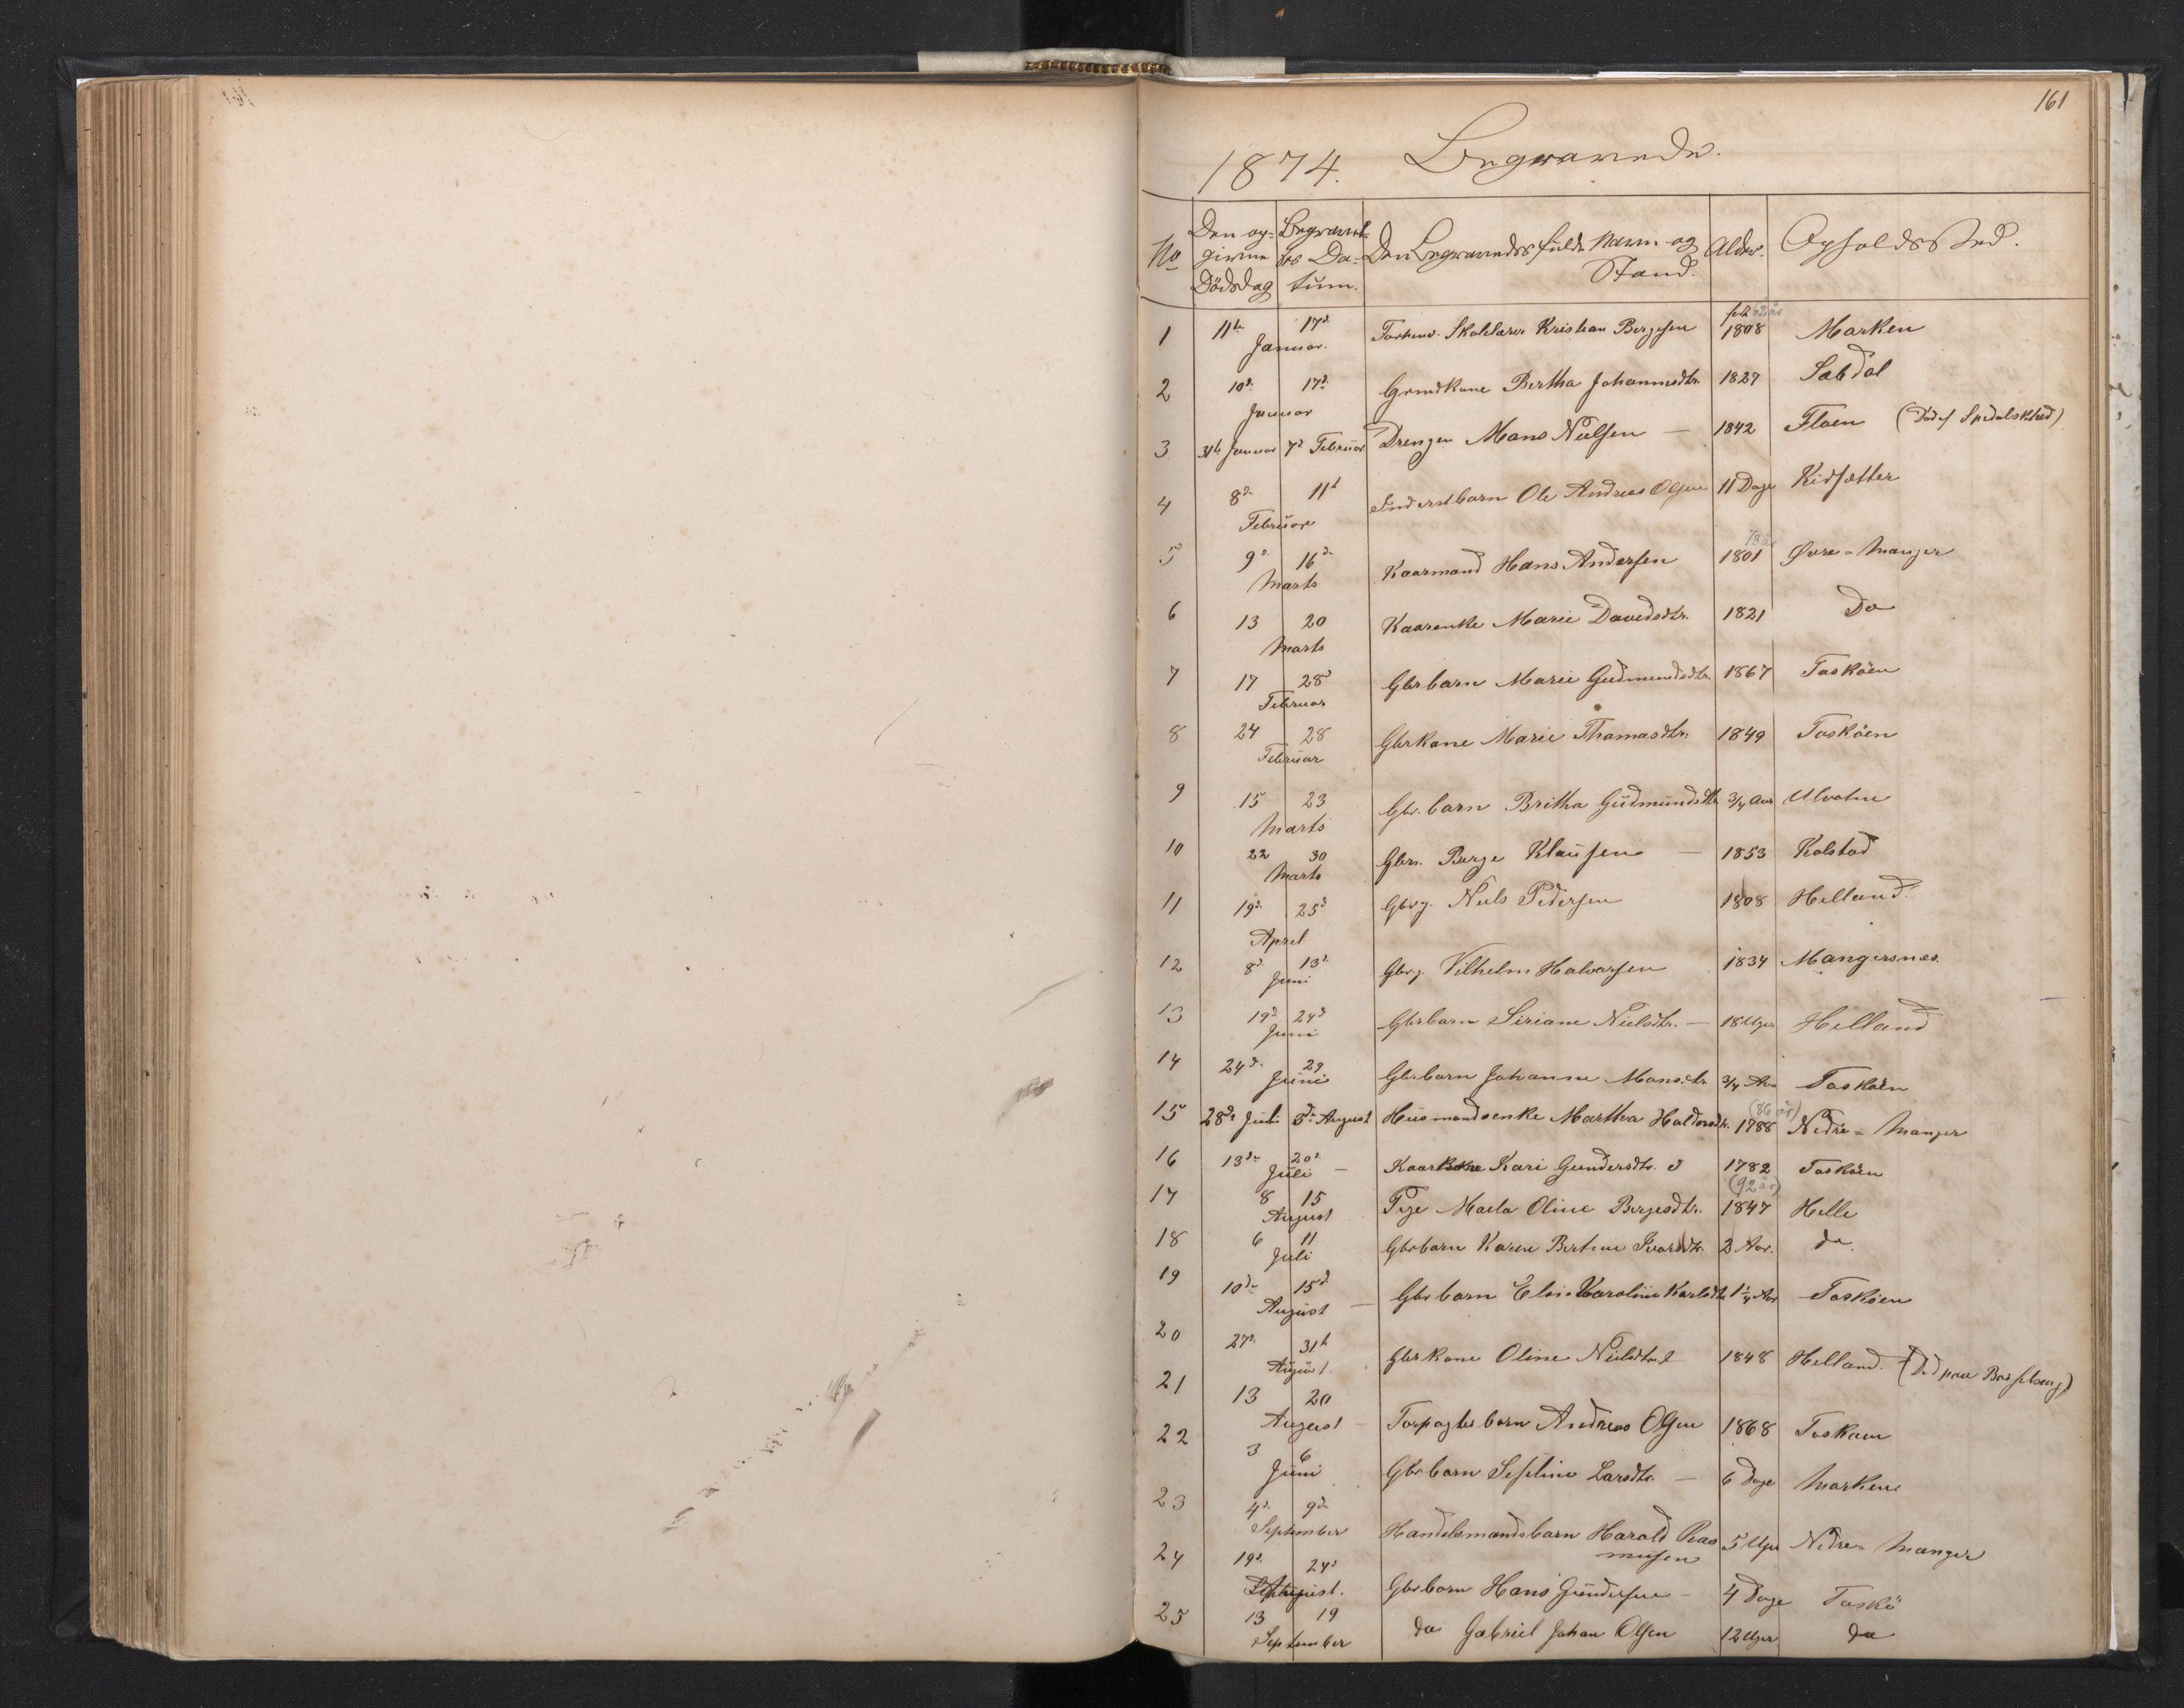 161
1874. Begravede.
No Den op- givne Dödsdag Begravel- ses Da- tum. Den Begravedes fulde Navn og Stand. Alder. Opholdssted.
1 11te 17de Januar. Forhenv. Skolelærer Kristian Bergesen född 62 år 1808 Marken
2 10de 17de Januar Grmdkone Bertha Johannesdtr. 1827 Sæbdal
3 31te Januar 7de Februar Drengen Mons Nielsen — 1842 Floen (Död af Spedalskhed)
4 8de 11te Februar Inderstbarn Ole Andreas Olsen 11 Dage Kidsætter
5 9de 16de Marts Kaarmand Hans Andersen 73 år 1801 Øvre-Manger
6 13 20 Marts Kaarenke Marie Davidsdtr. 1821 Do
7 17 28de Februar Gbrbarn Marie Gudmundsdtr. 1867 Tosköen
8 24 28 Februar Gbrkone Marie Thomasdtr. 1849 Tosköen
9 15 23 Marts Gbr.barn Britha Gudmundsdtr. 3/4 Aar Ulvatne
10 22 30 Marts Gbrs. Berge Klausen — 1853 Kolstad
11 19de 25de April Gbrg. Niels Pedersen 1808 Helland
12 8de 13de Juni Gbrg. Vilhelm Halvorsen 1834 Mangersnæs.
13 19de 24de Juni Gbrbarn Siriane Nielsdtr. — 18 Uger Helland
14 24de 29 Juni Gbrbarn Johanne Monsdtr. 3/4 Aar Toskøen
15 28de Juli 3de August Husmandsenke Martha Haldorsdtr. (86 år) 1788 Nedre-Manger
16 13de 20de Juli — Kaarkone Kari Gundersdtr. 1782 (92 år) Toskøen
17 8 15 August Pige Marta Oline Bergesdtr. 1847 Helle
18 6 11 Juli Gbrbarn Karen Bertine Ivarsdtr. 2 Aar. do.
19 10de 15de August — Gbrbarn Karoline Karlsdtr. 1 1/4 Aar Toskøen
20 27de 31te August Gbrkone Oline Nielsdtr. 1848 Helland. (Död paa Barselseng)
21 13 20 August — Forpagterbarn Andreas Olsen 1868 Toskøen
22 3 6 Juni Gbrbarn Lardtr. — 6 Dage Marken
23 4de 9de September Handelsmandsbarn Harald Ras- musen 5 Uger Nedre-Manger
24 19de 24de August. Gbrbarn Hans Gundersen — 4 Dage Toskö
25 13 19 September do Gabriel Johan Olsen 12 Uger do